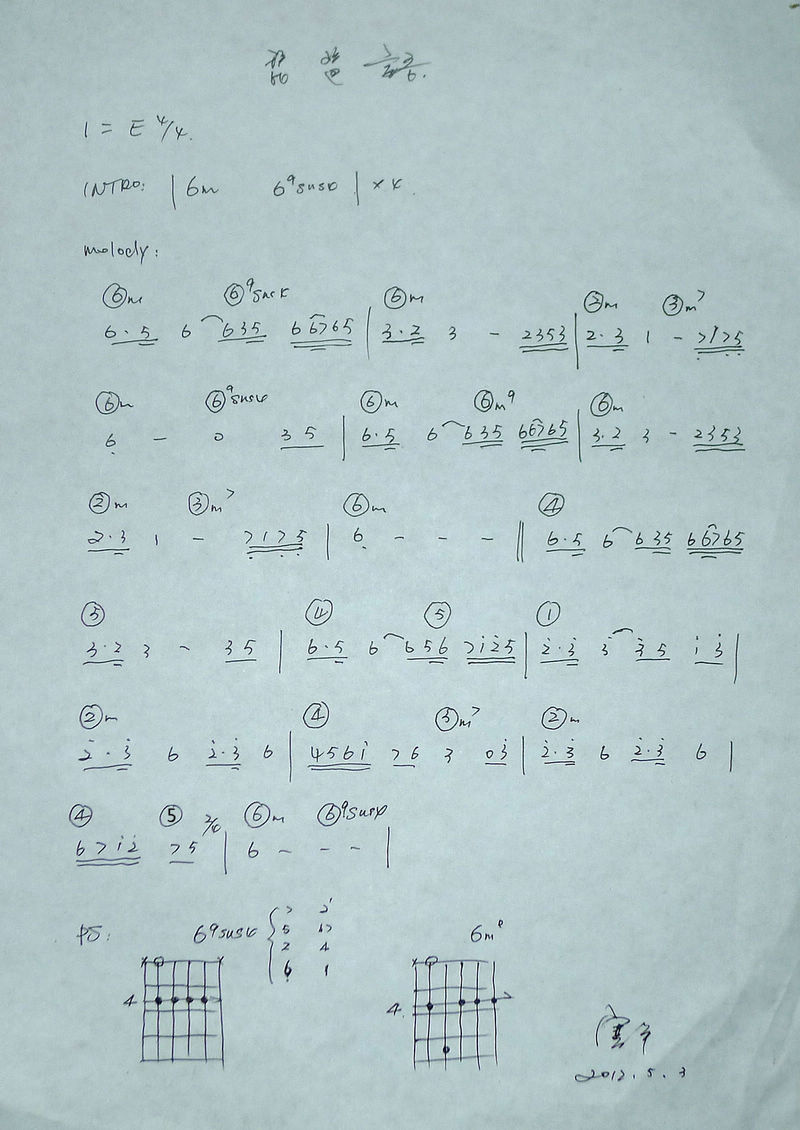 琵琶语
1 = E 4/4.
INTRO: | 6m 6⁹sus4 | × 4.
melody:
⑥m ⑥⁹sus4 ⑥m ②m ③m⁷
6·5 6 635 66765 | 3·2 3 - 2353 | 2·3 1 - 7175
⑥m ⑥⁹sus4 ⑥m ⑥m⁹ ⑥m
6 - 0 35 | 6·5 6 635 66765 | 3·2 3 - 2353
②m ③m⁷ ⑥m ④
2·3 1 - 7175 | 6 - - - || 6·5 6 635 66765
④ ⑤ ①
3·2 3 - 35 | 6·5 6 656 7i̇2̇5 | 2̇·3̇ 3̇ 3̇5 i̇3̇ |
②m ④ ③m⁷ ②m
2̇·3̇ 6 2̇·3̇ 6 | 456i̇ 76 3 03̇ | 2̇·3̇ 6 2̇·3̇ 6 |
④ ⑤ ⑥m ⑥⁹sus4
67i̇2̇ 75 | 6 - - - |
PS: 6⁹sus4 6m⁹
5
2 4
6 1
4 4.
2012.5.3